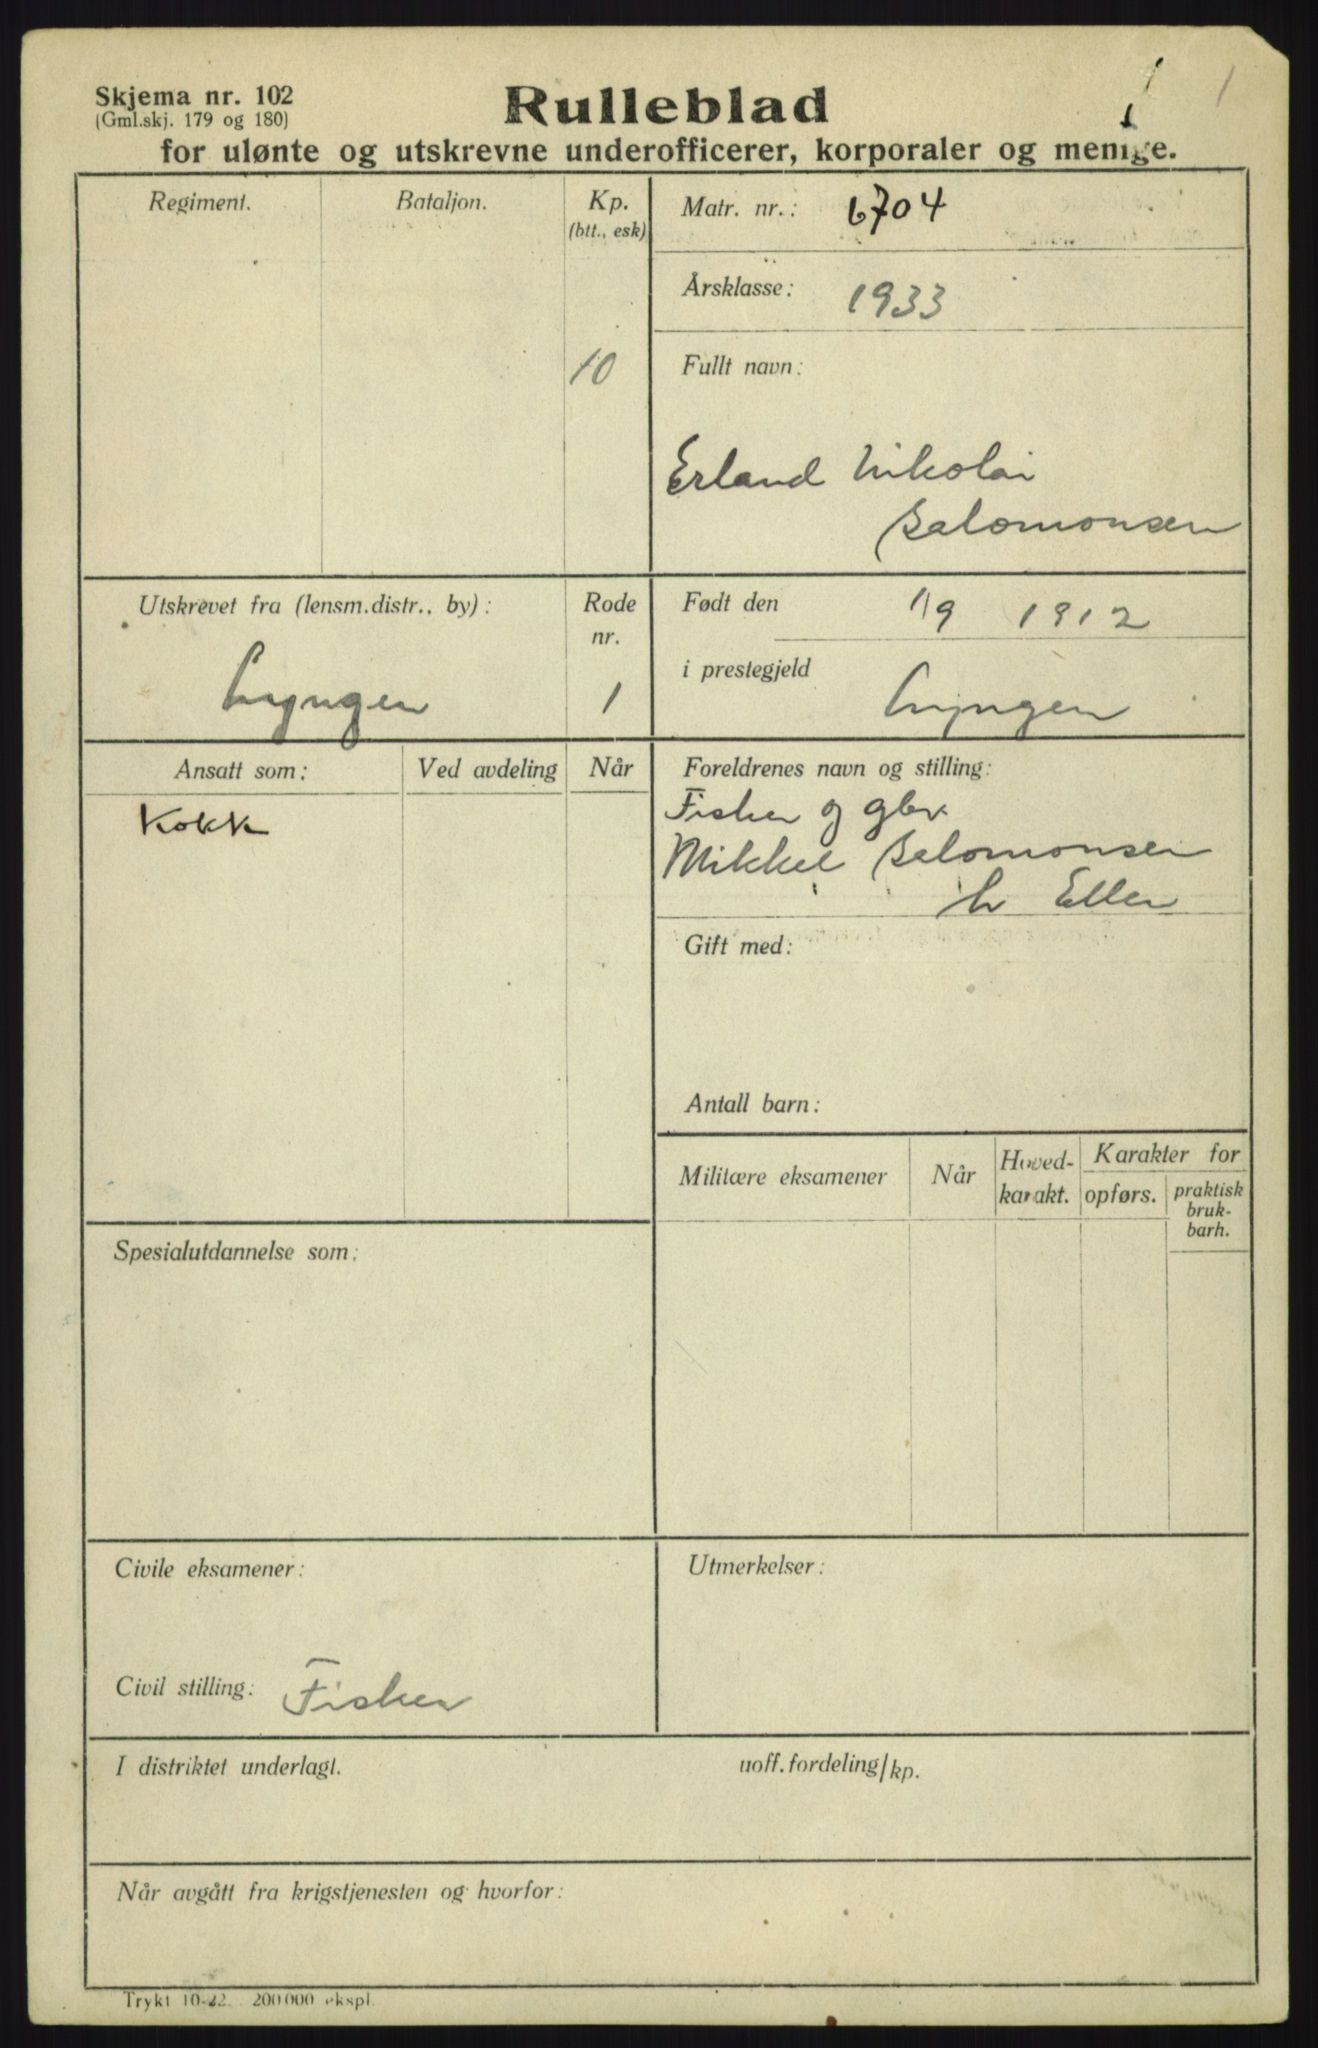 Skjema nr. 102
(Gml.skj. 179 og 180)
Rulleblad
1
for ulønte og utskrevne underofficerer, korporaler og menige.
Regiment.
Bataljon.
Kp.
(btt., esk)
10
Matr. nr.: 6704
Årsklasse: 1933
Fullt navn:
Erland Nikolai
Salomonsen
Utskrevet fra (lensm.distr.. by):
Lyngen
Rode
nr.
1
Født den 1/9 1912
i prestegjeld Lyngen
Ansatt som:
Ved avdeling
Når
Kokk
Foreldrenes navn og stilling:
Fisker og gbr.
Mikkel Salomonsen
h Ellen
Gift med:
Antall barn:
Militære eksamener
Når
Hoved-
karakt.
Karakter for
opførs.
praktisk
bruk-
barh.
Spesialutdannelse som:
Civile eksamener:
Civil stilling: Fisker
Utmerkelser:
I distriktet underlagt.
uoff. fordeling/kp.
Når avgått fra krigstjenesten og hvorfor:
Trykt 10-22. 200000 ekspl.